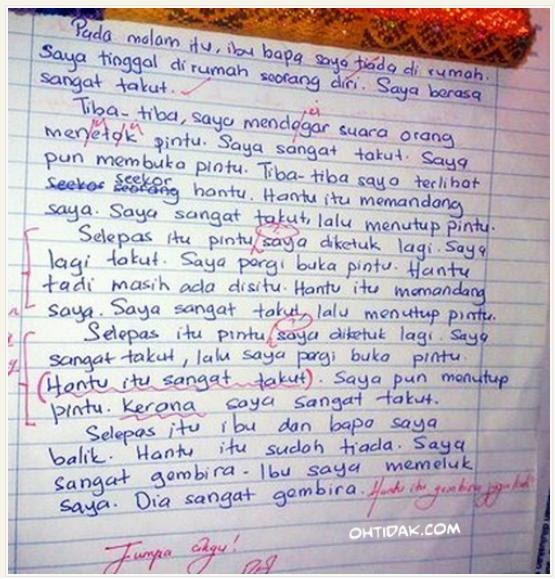 Pada malam itu, ibu bapa saya tiada di rumah.
Saya tinggal di rumah seorang diri. Saya berasa
sangat takut.
Tiba-tiba, saya mendegar suara orang
menyetok pintu. Saya sangat takut. Saya
pun membuka pintu. Tiba-tiba saya terlihat
seekor hantu. Hantu itu memandang
saya. Saya sangat takut, lalu menutup pintu.
Selepas itu pintu saya diketuk lagi. Saya
lagi takut. Saya pergi buka pintu. Hantu
tadi masih ada disitu. Hantu itu memandang
saya. Saya sangat takut, lalu menutup pintu.
Selepas itu pintu saya diketuk lagi. Saya
sangat takut, lalu saya pergi buka pintu.
(Hantu itu sangat takut). Saya pun menutup
pintu. Kerana saya sangat takut.
Selepas itu ibu dan bapa saya
balik. Hantu itu sudah tiada. Saya
sangat gembira. Ibu saya memeluk
saya. Dia sangat gembira. Hantu itu gembira juga kah?
OHTIDAK.COM
Jumpa cikgu!